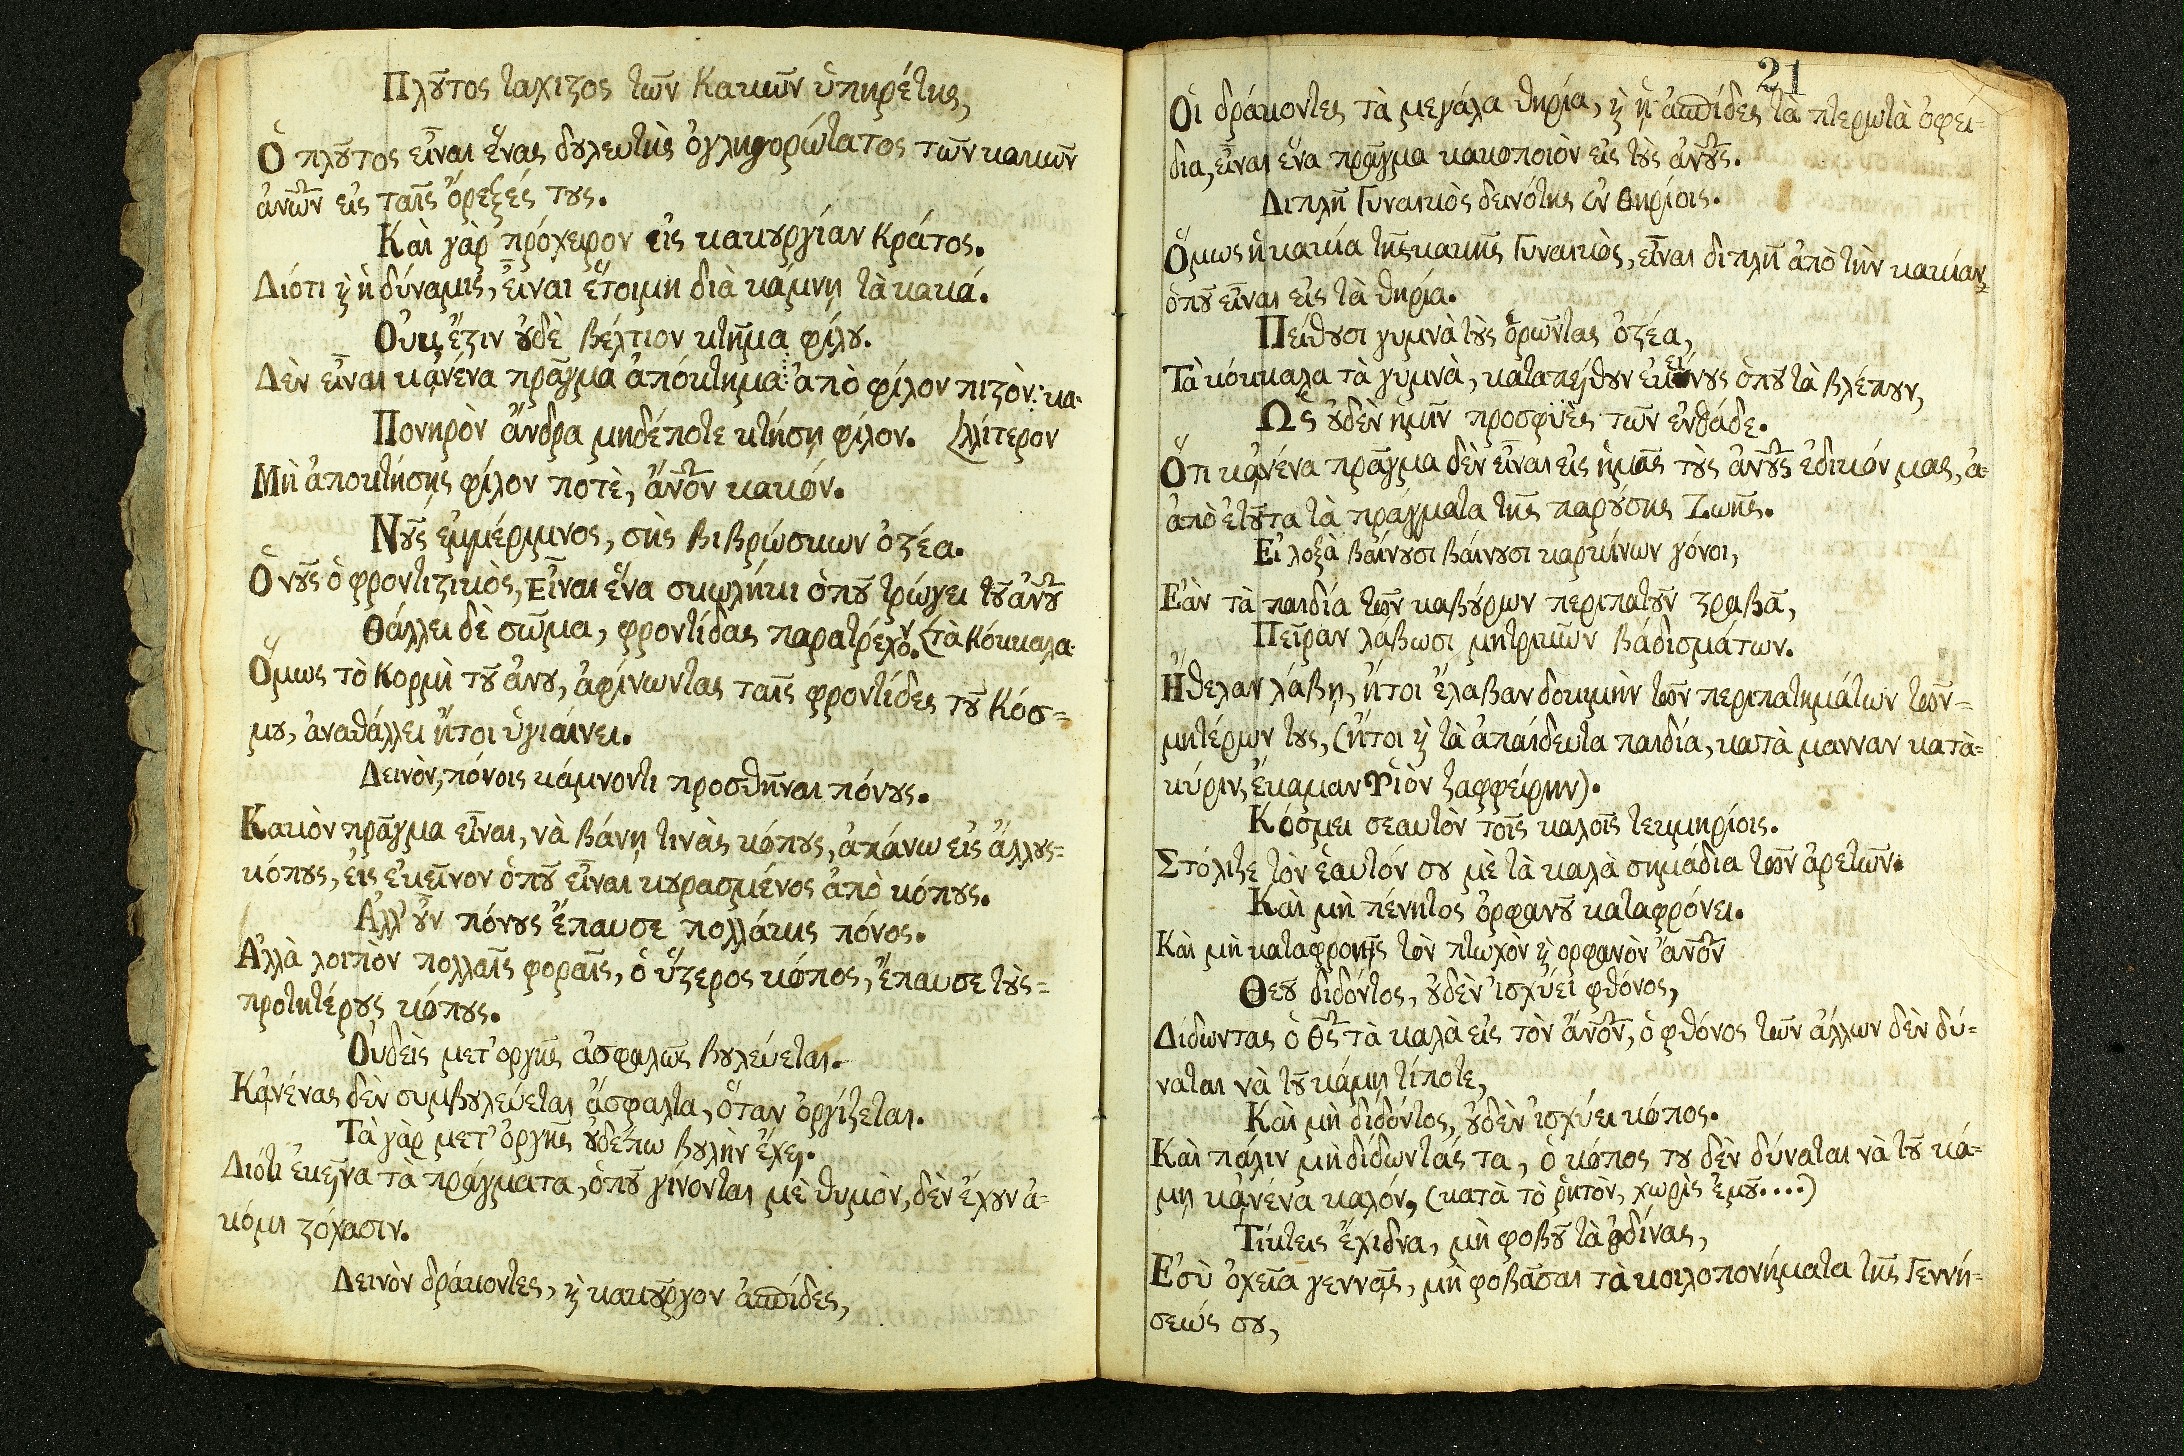 Πλοῦτος ταχιστος τῶν Κακῶν ὑπηρέτης,
Ὁ πλοῦτος εἶναι ἕνας δουλευτὴς ὀγληγορώτατος τῶν κακῶν
ἀνων εἰς ταῖς ὄρεξές τους.
Καὶ γὰρ πρόχειρον εἰς κακουργίαν Κράτος.
Διότι ϗ ἡ δύναμις, εἶναι ἕτοιμη διὰ κάμνῃ τὰ κακά.
Οὐκ ἔστιν οὐδὲ βέλτιον κτῆμα φίλου.
Δὲν εἶναι κᾀνένα πρᾶγμα ἀπόκτημα ἀπὸ φίλον πιστὸν: κα-
Πονηρὸν ἄνδρα μηδέποτε κτήσῃ φίλον. (λλίτερον
Μὴ ἀποκτήσῃς φίλον ποτὲ, ἄνον κακόν.
Νοῦς ἐμμέριμνος, σὴς βιβρώσκων ὀστέα.
Ὁ νοῦς ὁ φροντιστικὸς, Εἶναι ἕνα σκωλήκι ὁποῦ τρώγει τοῦ ἀνου
Θάλλει δὲ σῶμα, φροντίδας παρατρέχον. (τὰ Κόκκαλα.
Ὅμως τὸ Κορμὶ τοῦ ἀνου, ἀφίνωντας ταῖς φροντίδες τοῦ Κόσ=
μου, ἀναθάλλει ἤτοι ὑγιαίνει.
Δεινὸν, πόνοις κάμνοντι προσθῆναι πόνους.
Κακὸν πρᾶγμα εἶναι, νὰ βάνῃ τινὰς κόπους, ἀπάνω εἰς ἄλλους=
κόπους, εἰς ἐκεῖνον ὁποῦ εἶναι κουρασμένος ἀπὸ κόπους.
Ἀλλ' οὖν πόνους ἔπαυσε πολλάκις πόνος.
Ἀλλὰ λοιπὸν πολλαῖς φοραῖς, ὁ ὕστερος κόπος, ἔπαυσε τοὺς=
προτητέρους κόπους.
Οὐδεὶς μετ' ὀργῆς ἀσφαλῶς βουλεύεται.
Κᾀνένας δὲν συμβουλεύεται ἄσφαλτα, ὅταν ὀργίζεται.
Τὰ γὰρ μετ' ὀργῆς οὐδέπω βουλὴν ἔχει.
Διότι ἐκεῖνα τὰ πράγματα, ὁποῦ γίνονται μὲ θυμὸν, δὲν ἔχουν ἀ-
κόμι στόχασιν.
Δεινὸν δράκοντες, ϗ κακοῦργον ἀσπίδες,
21
Οἱ δράκοντες τὰ μεγάλα θηρία, ϗ ἡ ἀσπίδες τὰ πτερωτὰ ὀφεί-
δια, εἶναι ἕνα πρᾶγμα κακοποιὸν εἰς τοὺς ἀνους.
Διπλῆ Γυναικὸς δεινότης ἐν θηρίοις.
Ὅμως ἡ κακία τῆς κακῆς Γυναικὸς, εἶναι διπλῆ ἀπὸ τὴν κακίαν,
ὁποῦ εἶναι εἰς τὰ θηρία.
Πείθουσι γυμνὰ τοὺς ὁρῶντας ὀστέα,
Τὰ κόκκαλα τὰ γυμνὰ, καταπείθουν ἐκείνους ὁποῦ τὰ βλέπουν,
Ὡς οὐδὲν ἡμῖν προσφυὲς τῶν ἐνθάδε.
Ὅτι κᾀνένα πρᾶγμα δὲν εἶναι εἰς ἡμᾶς τοὺς ἀνους ἐδικόν μας, ἀ-
ἀπὸ ἐτοῦτα τὰ πράγματα τῆς παρούσης Ζωῆς.
Εἰ λοξὰ βαίνουσι βαίνουσι καρκίνων γόνοι,
Ἐὰν τὰ παιδία τῶν καβούρων περιπατοῦν στραβὰ,
Πεῖραν λάβωσι μητρικῶν βαδισμάτων.
Ἤθελαν λάβῃ, ἤτοι ἔλαβαν δοκιμὴν τῶν περιπατημάτων τῶν=
μητέρων τους, (ἤτοι ϗ τὰ ἀπαίδευτα παιδία, κατὰ μανναν κατὰ=
κύριν, ἔκαμαν Υἱὸν ζαφφείρην).
Κόσμει σεαυτὸν τοῖς καλοῖς τεκμηρίοις.
Στόλιζε τὸν ἑαυτόν σου μὲ τὰ καλὰ σημάδια τῶν ἀρετῶν.
Καὶ μὴ πένητος ὀρφανοῦ καταφρόνει.
Καὶ μὴ καταφρονῇς τὸν πτωχὸν ϗ ὀρφανὸν ἄνον
Θεου διδόντος, οὐδὲν ἰσχύει φθόνος,
Δίδωντας ὁ Θς τὰ καλὰ εἰς τὸν ἄνον, ὁ φθόνος τῶν ἄλλων δὲν δύ-
ναται νὰ τοῦ κάμῃ τίποτε,
Καὶ μὴ διδόντος, οὐδὲν ἰσχύει κόπος.
Καὶ πάλιν μὴ δίδωντάς τα, ὁ κόπος του δὲν δύναται νὰ τοῦ κά-
μῃ κᾀνένα καλόν, (κατὰ τὸ ῥητὸν, χωρὶς ἐμοῦ....)
Τίκτεις ἔχιδνα, μὴ φοβοῦ τὰ ὠδίνας,
Ἐσὺ ὀχεῖα γεννᾷς, μὴ φοβᾶσαι τὰ κοιλοπονήματα τῆς Γεννή-
σεώς σου,